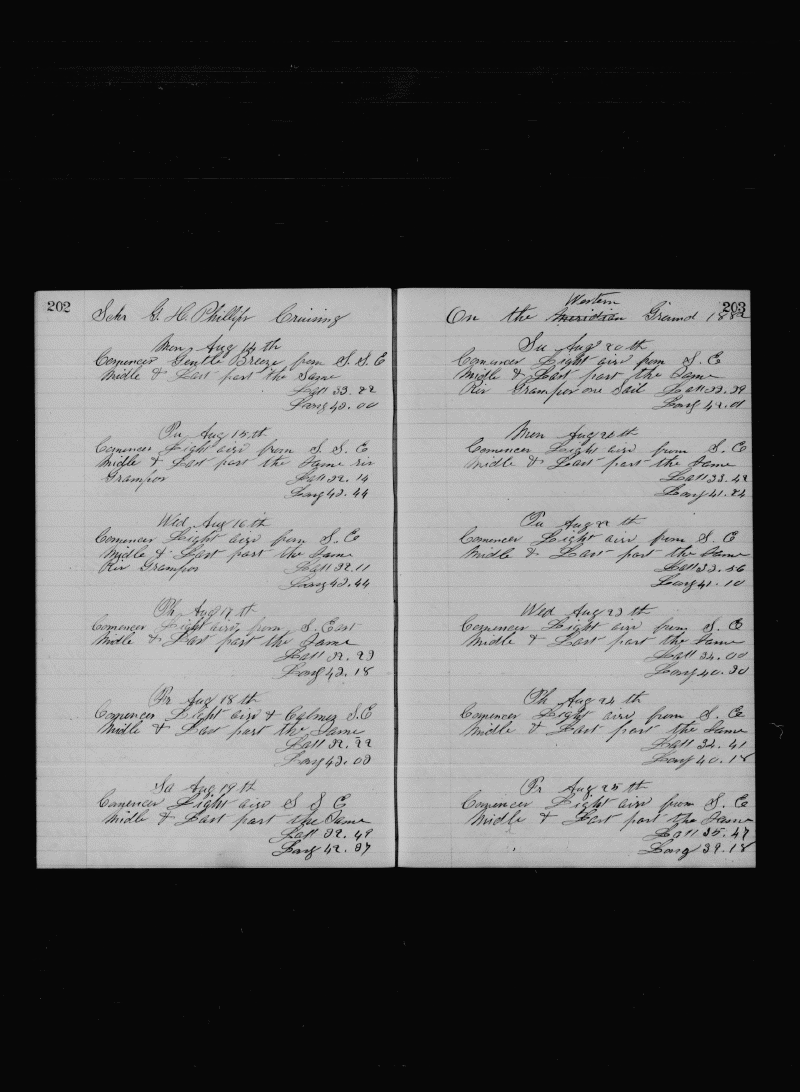 202
Schr G. H. Phillips Cruising
Mon Aug 14 th
Comences Gentle Breeze from S. S. E
Midle & Last part the Same
Latt 33. 22
Long 43. 00
Tu Aug 15 th
Comences Light airs from S. S. E
Midle & Last part the Same
Grampos Latt 32. 14
Long 43. 44
Wed Aug 16 th
Comences Light airs from S. E
Midle & Last part the Same
Grampos Latt 32. 11
Long 43. 44
Th Aug 17 th
Comences Light airs from S. East
Midle & Last part the Same
Latt 32. 23
Long 43. 18
Fr Aug 18 th
Comences Light airs & Calmes S. E
Midle & Last part the Same
Latt 32. 22
Long 43. 03
Sa Aug 19 th
Comences Light airs S S E
Midle & Last part the Same
Latt 32. 49
Long 42. 37
203
Western
On the Meridian Ground 1882
Su Aug 20 th
Comences Light airs from S. E
Midle & Last part the Same
Grampos one Sail Latt 33. 39
Long 42. 01
Mon Aug
Comences Light airs from S. E
Midle & Last part the Same
Latt 33. 42
Long 41. 24
Tu Aug 22 th
Comences Light airs from S. E
Midle & Last part the Same
Latt 33. 56
Long 41. 10
Wed Aug 23 th
Comences Light airs from S. E
Midle & Last part the Same
Latt 34. 00
Long 40. 30
Th Aug 24 th
Comences Light airs from S. E
Midle & Last part the Same
Latt 34. 41
Long 40. 18
Fr Aug 25 th
Comences Light airs from S. E
Midle & Last part the Same
Latt 35. 47
Long 39. 18